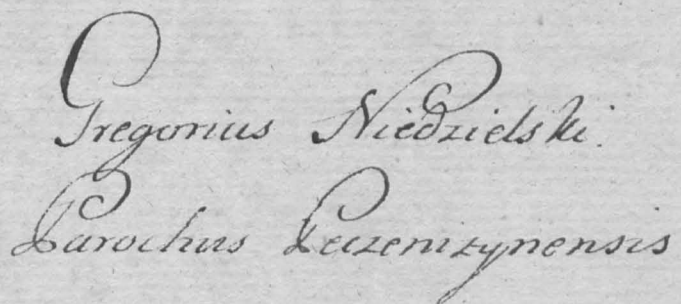 Gregorius Niedzielski.
Parochus Peczenizynensis